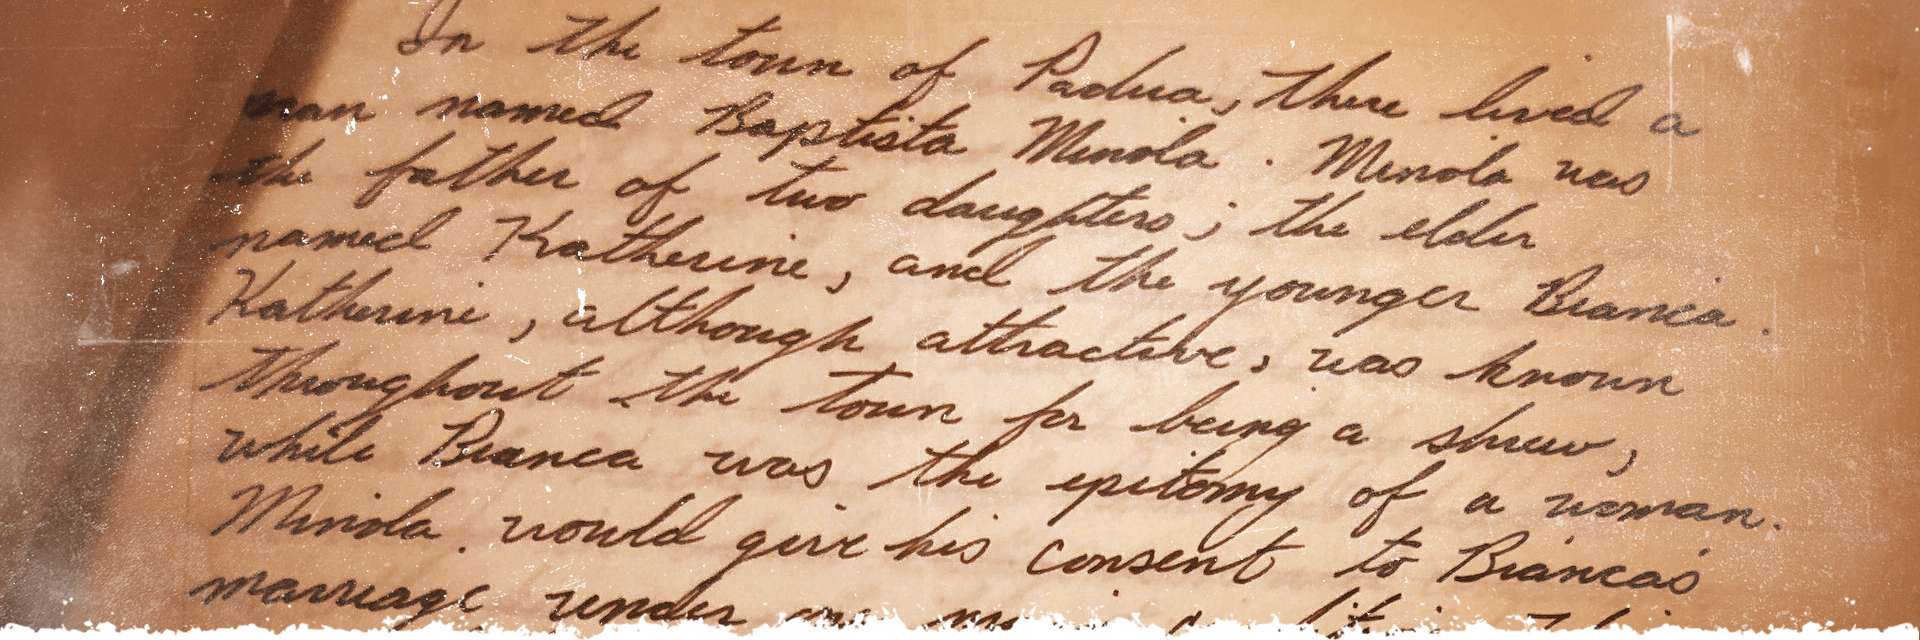 In the town of Padua, there lived a
man named Baptista Minola. Minola was
the father of two daughters; the elder
named Katherine, and the younger Bianca.
Katherine, although attractive, was known
throughout the town for being a shrew,
while Bianca was the epitomy of a woman.
Minola would give his consent to Bianca's
marriage under